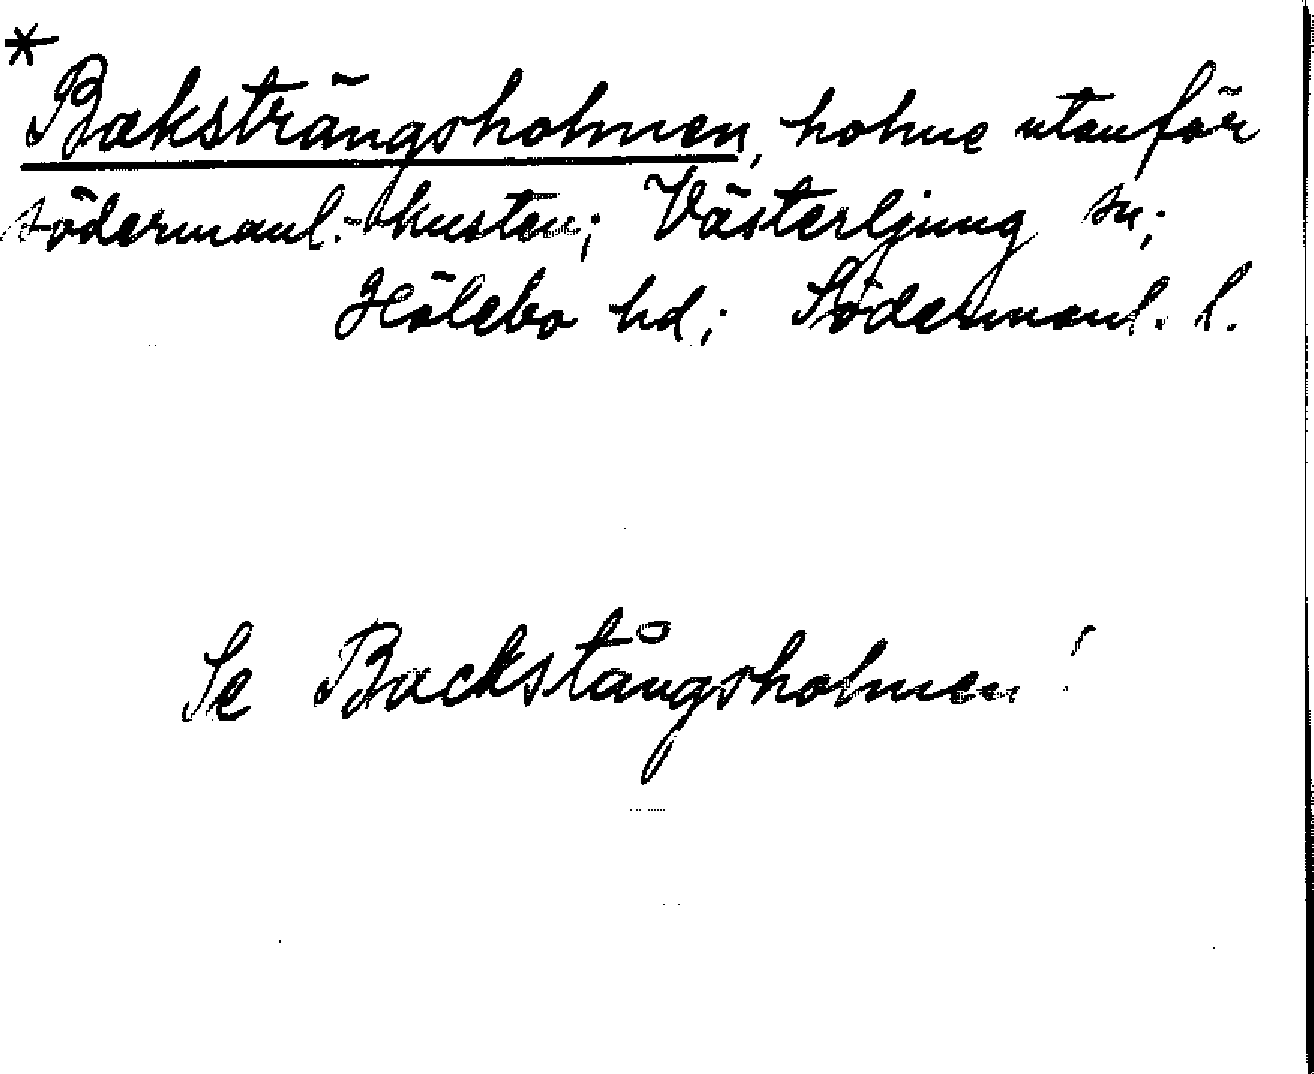 * Baksträngsholmen, holme utanför
södermanl.-kusten; Västerljung sn;
Hölebo hd; Södermanl. l.
Se Backstångsholmen!